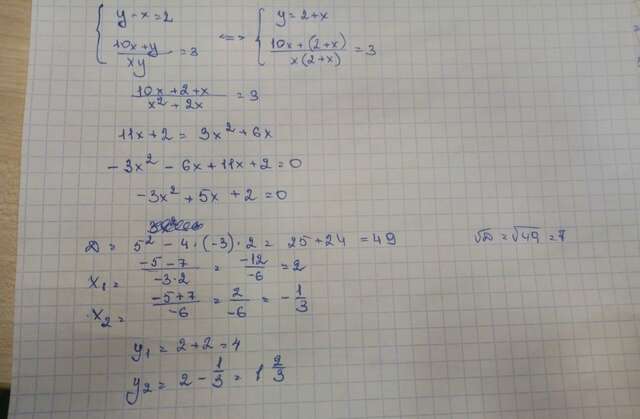 { y - x = 2   { y = 2 + x
(10x + y)/(xy) = 3 <=> (10x + (2 + x))/(x(2 + x)) = 3
(10x + 2 + x)/(x² + 2x) = 3
11x + 2 = 3x² + 6x
-3x² - 6x + 11x + 2 = 0
-3x² + 5x + 2 = 0
D = 5² - 4 · (-3) · 2 = 25 + 24 = 49   √D = √49 = 7
x₁ = (-5 - 7)/(-3·2) = (-12)/(-6) = 2
x₂ = (-5 + 7)/(-6) = 2/(-6) = -1/3
y₁ = 2 + 2 = 4
y₂ = 2 - 1/3 = 1 2/3